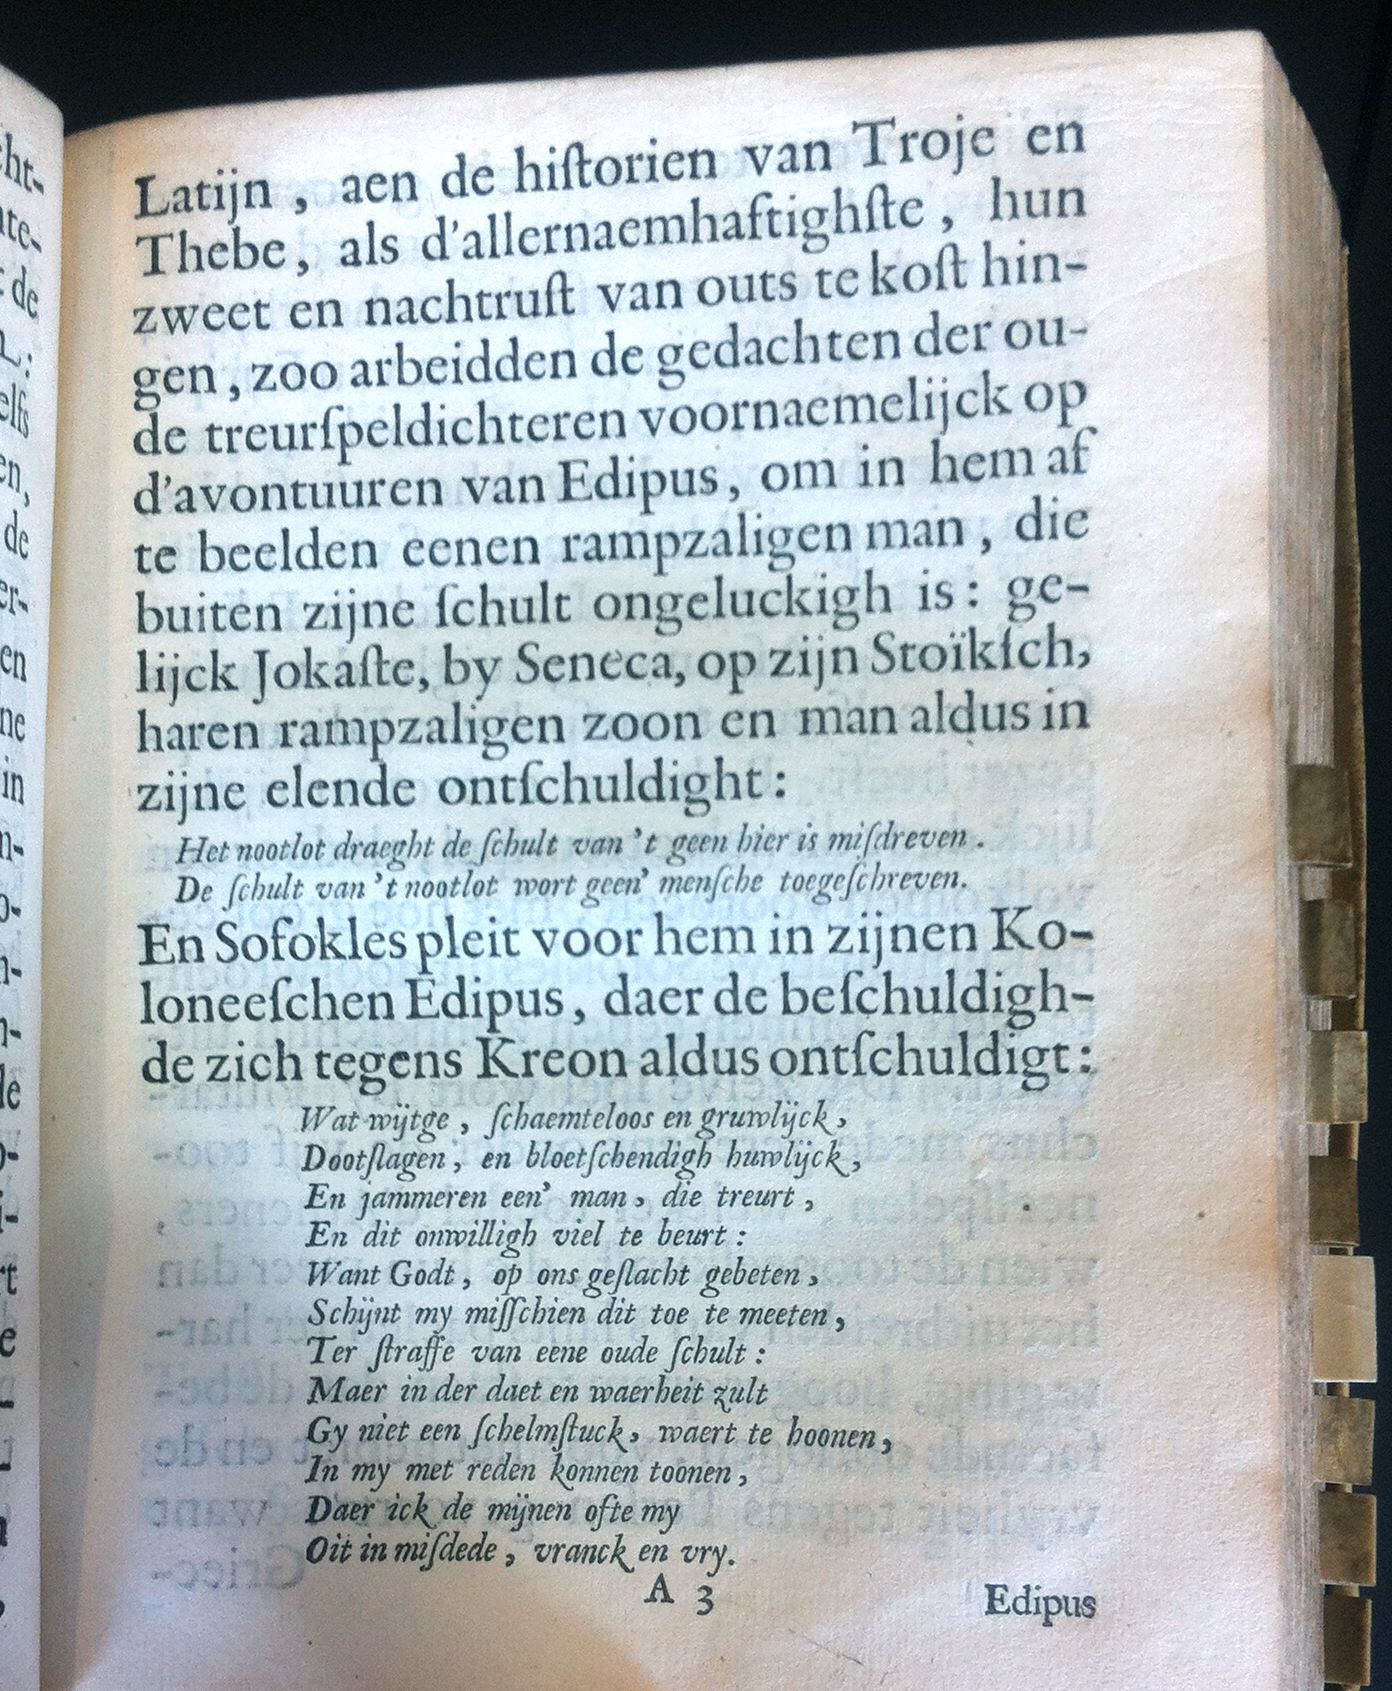 Latijn , aen de hiſtorien van Troje en
Thebe, als d'allernaemhaftighſte , hun
zweet en nachtruſt van outs te koſt hin-
gen , zoo arbeidden de gedachten der ou-
de treurſpeldichteren voornaemelijck op
d'avontuuren van Edipus, om in hem af
te beelden eenen rampzaligen man , die
buiten zijne ſchult ongeluckigh is : ge-
lijck Jokaſte, by Seneca, op zijn Stoïkſch,
haren rampzaligen zoon en man aldus in
zijne elende ontſchuldight :
Het nootlot draeght de ſchult van 't geen hier is miſdreven .
De ſchult van 't nootlot wort geen' menſche toegeſchreven.
En Sofokles pleit voor hem in zijnen Ko-
loneeſchen Edipus, daer de beſchuldigh-
de zich tegens Kreon aldus ontſchuldigt :
Wat wijtge , ſchaemteloos en gruwlijck,
Dootſlagen, en bloetſchendigh huwlijck,
En jammeren een' man, die treurt ,
En dit onwilligh viel te beurt :
Want Godt, op ons geſlacht gebeten,
Schijnt my miſſchien dit toe te meeten,
Ter ſtraffe van eene oude ſchult :
Maer in der daet en waerheit zult
Gy niet een ſchelmſtuck, waert te hoonen,
In my met reden konnen toonen,
Daer ick de mijnen ofte my
Oit in miſdede , vranck en vry.
A 3 Edipus
ht-
te-
de
:
elfs
en,
de
er-
en
ne
in
n-
o-
n-
n-
le
o-
i-
rt
e